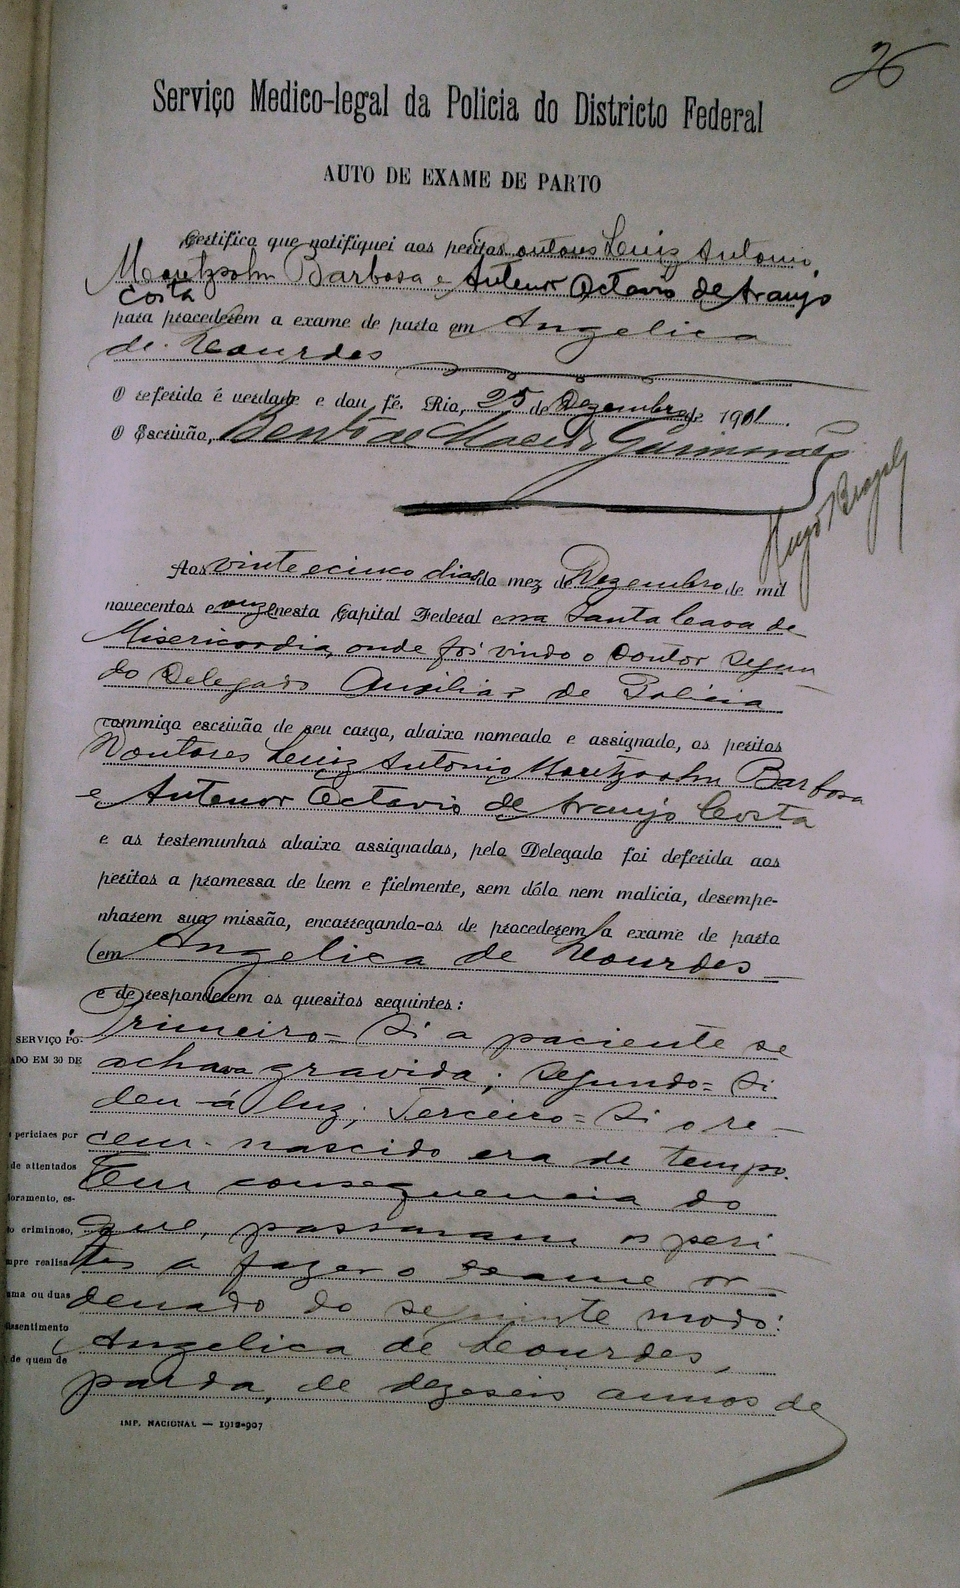 26
Serviço Medico-legal da Policia do Districto Federal
AUTO DE EXAME DE PARTO
Certifico que notifiquei aos peritos outores Luiz Antonio
Moretzsohn Barbosa e Antenor Octavio de Araujo
Costa
para procederem a exame de parto em Angelica
de Lourdes
O referido é verdade e dou fé. Rio, 25 de Dezembro de 1911.
O Escrivão, Bento de Macedo Guimarães
Hugo
Aos vinte e cinco dias do mez de Dezembro de mil
novecentos e onze nesta Capital Federal e na Santa Casa de
Misericordia, onde foi vindo o Doutor Segun
do Delegado Auxiliar de Policia
commigo escrivão de seu cargo, abaixo nomeado e assignado, os peritos
Doutores Luiz Antonio Moretzsohn Barbosa
e Antenor Octavio de Araujo Costa
e as testemunhas abaixo assignadas, pelo Delegado foi deferida aos
peritos a promessa de bem e fielmente, sem dólo nem malicia, desempe-
nharem sua missão, encarregando-os de procederem a exame de parto
em Angelica de Lourdes
e de responderem os quesitos seguintes:
Primeiro = Si a paciente se
achava gravida; Segundo = Si
deu á luz; Terceiro = Si o re-
cem-nascido era de tempo.
Em consequencia do
que, passaram os peri
tos a fazer o exame or
denado do seguinte modo:
Angelica de Lourdes,
parda, de dezeseis annos de
SERVIÇO PO-
ADO EM 30 DE
periciaes por
de attentados
loramento, es-
o criminoso,
mpre realisa
uma ou duas
ssentimento
de quem de
IMP. NACIONAL — 1912-907